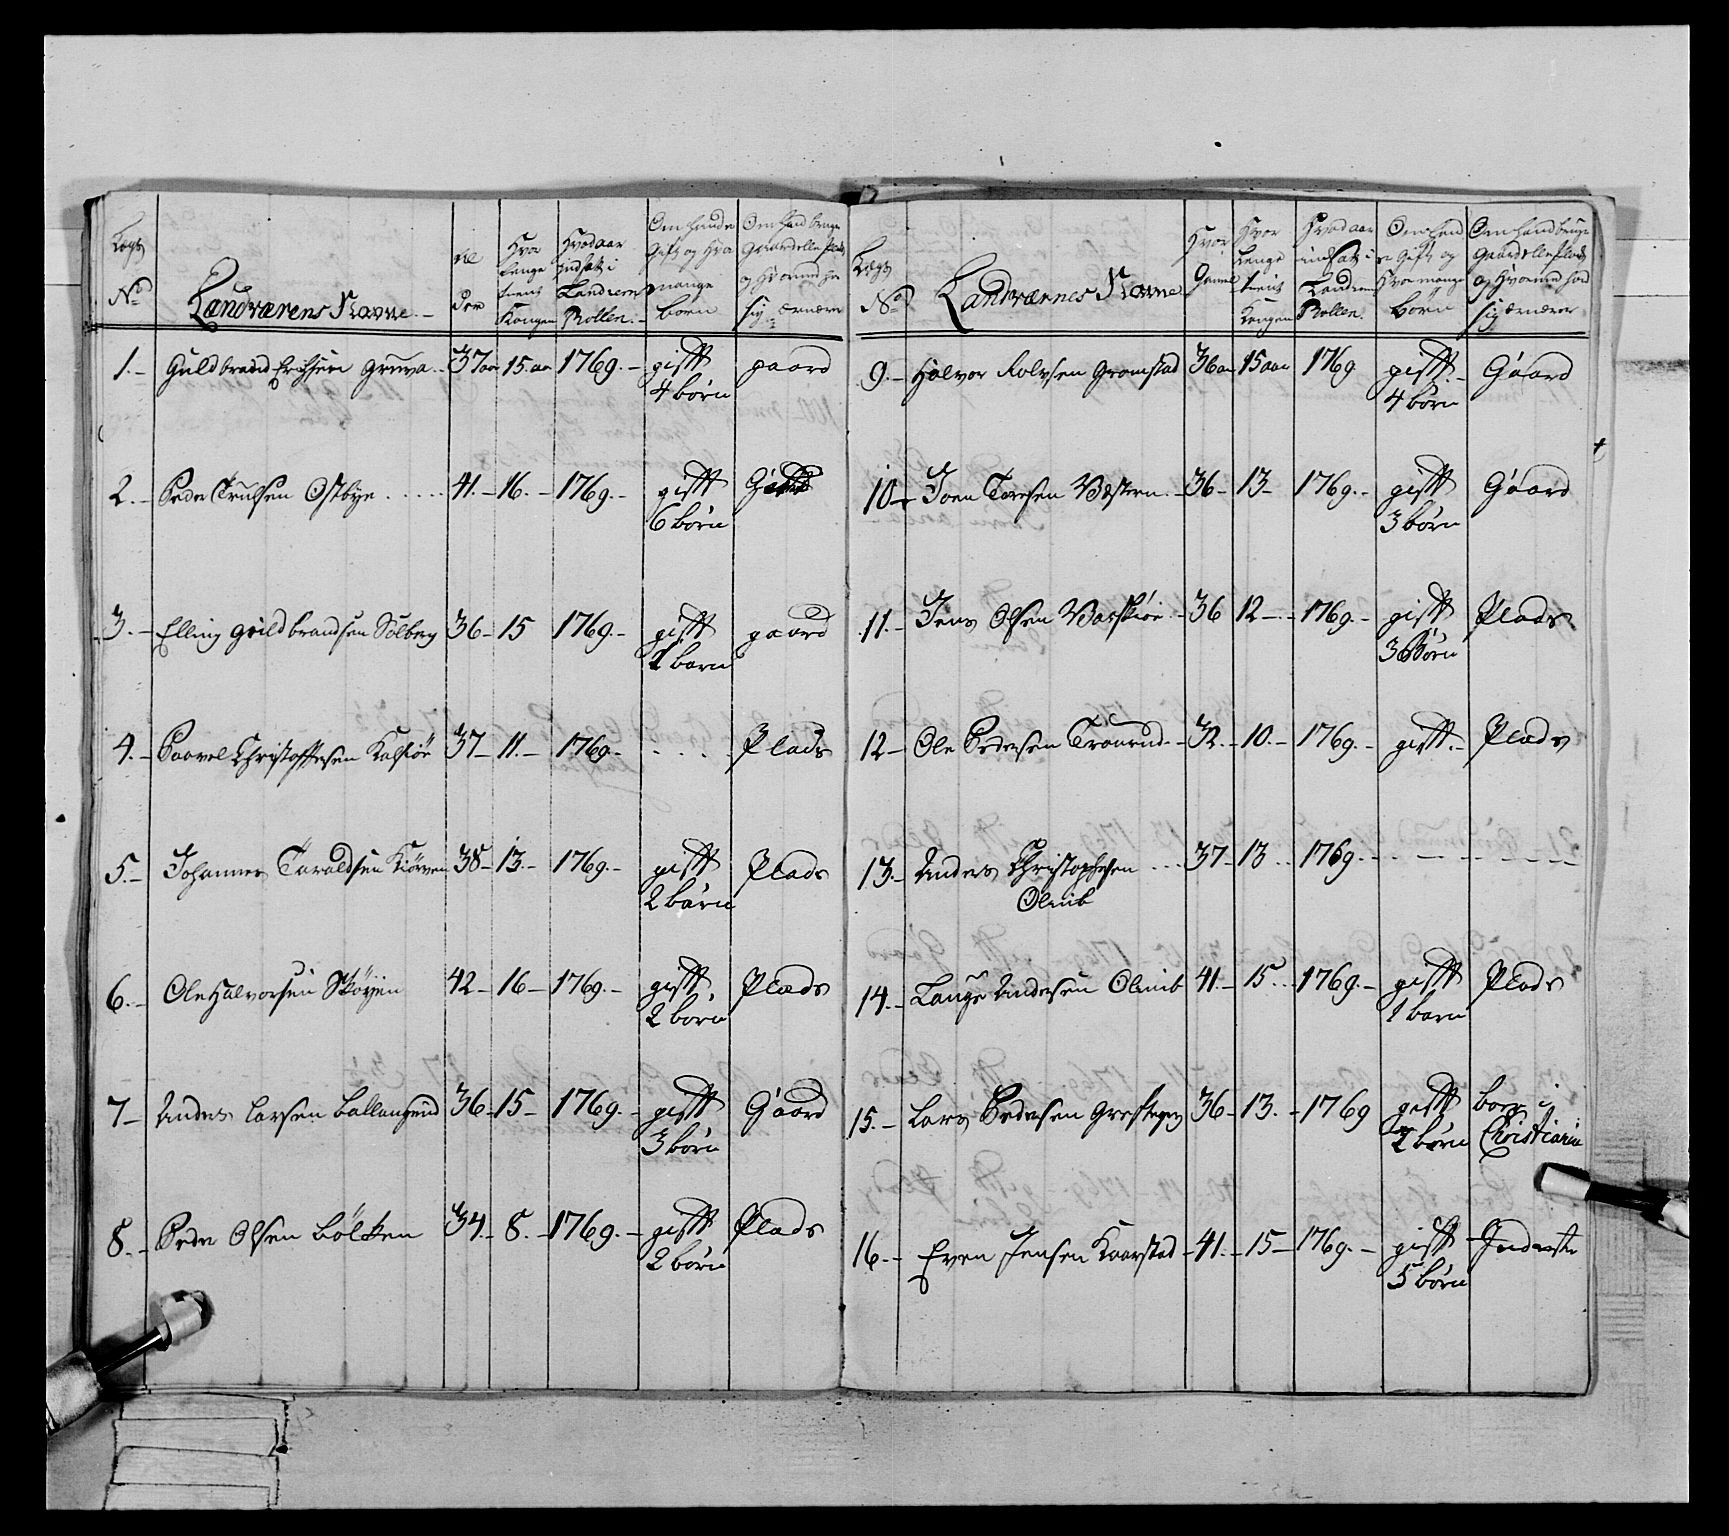 Lægs No
Landværens Navne
Hvor lenge tient Kongen
Hvad aar indsat i Landvern Rollen.
Om hand er Gift og Hvor mange børn
Om hand bruge Gaard eller Plads og Hvormed hand sig ernærer
1. Guldbrand Erichsen Gruva 37 aar 15. aar 1769. gifft 4 børn gaard
2. Peder Trulsen Ostbye 41. 16. 1769. gifft 6 børn
3. Elling Guldbrandsen Solberg 36 15 1769. gifft 1 barn gaard
4. Paavel Christophersen Kalsiøe 37 11. 1769. Plads
5. Johannes Taraldsen Kiørven 38 13. 1769. gifft 2 børn Plads
6. Ole Halvorsen Skøyen 42 16 1769. gifft 2 børn Plads
7 Anders Larsen Ballangrud 36 15 1769. gifft 3 børn Gaard
8. Peder Olsen Bølcken 34. 8. 1769. gifft 2 børn Plads
Lægs No
Landværnes Navne
Hvor Gamel
Hvor Lenge tient Kongen
Hvad aar indsat i Landvern Rollen.
Om hand er Gift og Hvor mange Børn
Om hand bruge Gaard eller Plads og Hvormed hand sig ernærer
9. Halvor Rolvsen Gromstad 36 aar 15 aar 1769 gifft 4 børn Gaard
10 Joen Toresen 36 13 1769. gifft 3 børn Gaard
11. Jens Olsen 36 12 1769. gifft 3 Børn Plads
12 Ole Pedersen Tranrud 32. 10. 1769. gifft. Plads
13. Anders Christophersen 37 13 1769.
Olmib
14. Lauge Andersen Olmib 41. 15 1769. gifft 1 barn Plads
15. Lars Pedersen 36 13. 1769 gifft 2 børn boer i Christiania
16. Even Jensen Kaarstad 41. 15 1769. gifft 5 børn Inderste